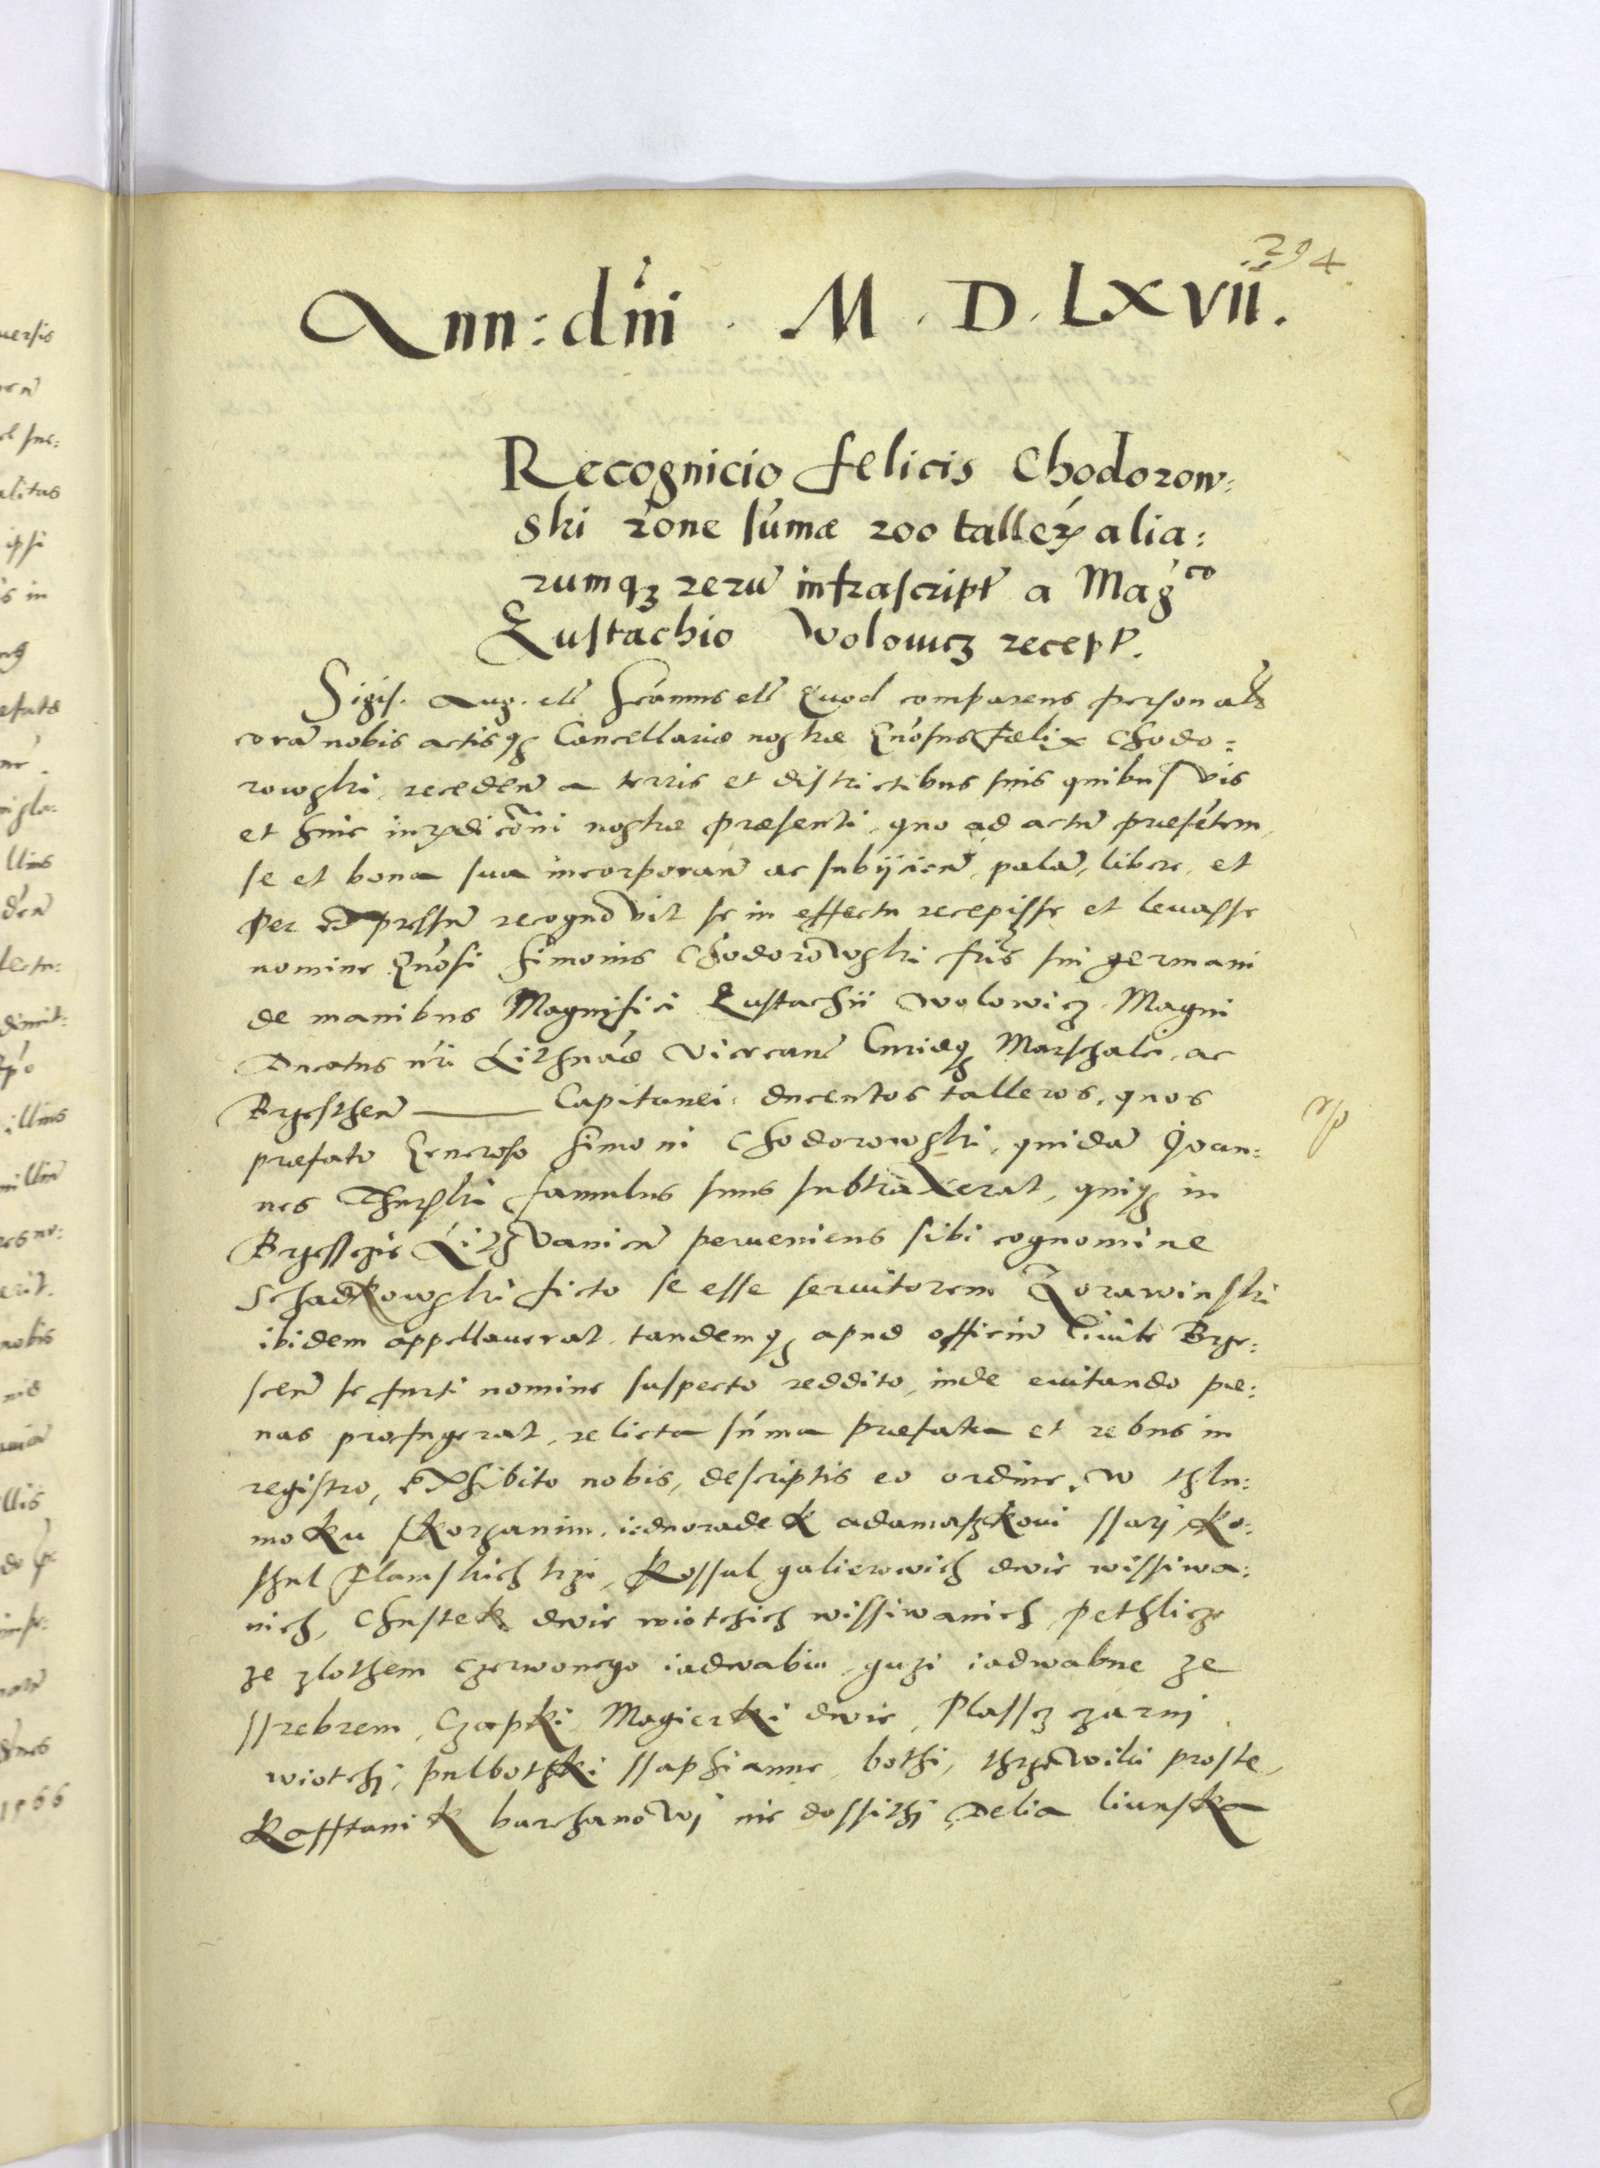 294
Ann: dni . M . D . LXVII .
Recognicio felicis Chodorow:
ski rone sumæ 200 taller alia:
rumqз rerū infrascript a Magco
Eustachio Wolowicz recept.
Sigis. Aug. etc Quod comparens personalr
corā nobis actisqз Cancellariæ nostræ Gnosus Fælix Chodo:
rowski, recedeñ a terris et districtibus suis quibusvis
et huic iurisdicōni nostræ præsenti, quo ad actū præsētem,
se et bona sua incorporañ ac subijcieñ, palā, libere, et
per expressū recognovit se in effectu recepisse et levasse
nomine Gnosi Simonis Chodorowski fris sui germani
de manibus Magnifici Eustachii Wolowicz Magni
Ducatus nri Lithuaæ Vicecanc Curiæqз Marschalci, ac
Brzestheñ Capitanei ducentos talleros, quos
præfato Generoso Simoni Chodorowski, quidā Joan:
nes famulus suus subtraxerat, quiqз in
Lithvanieñ perveniens sibi cognomine
Schadkowski ficto se esse servitorem Zorawinski
ibidem appellaverat, tandemqз apud officiū Civile Brze:
scieñ se furti nomine suspecto reddito, inde evitando pæ:
nas profugerat, relicta sūma præfata et rebus in
registro, exhibito nobis, descriptis eo ordine, w thlu:
moku skorzanim, iednoradek adamaszkovi ssarj, Ko:
shul Plamskich trzi, Kossul galierowich dwie wissiwa:
nich, Chustek dwie wiotchich wissiwanich, Pethlicze
ze zlothem czerwonego iadwabiu, guzi iadwabne ze
ssrebrem, Czapki Magierki dwie, Plassz czarni
wiotchj, pulbothki ssaphianne, bothi, thrzewiki proste,
Kafftanik barchanowj nie dossithj Delia liunska
1566